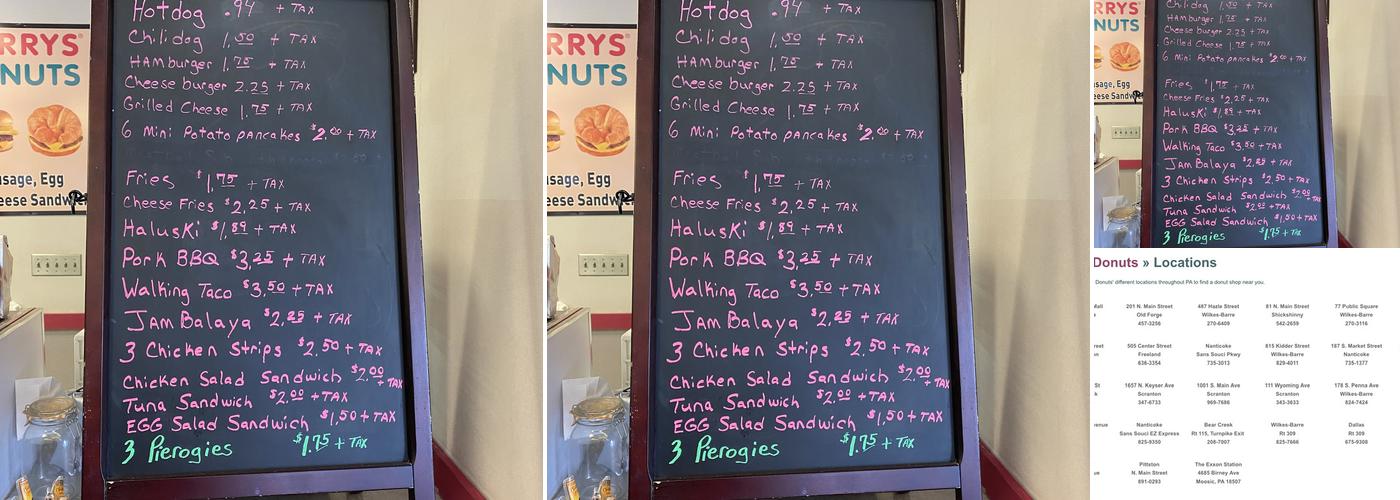 RRYS
NUTS
usage, Egg
eese Sandw
Hotdog .94 + TAX
Chilidog 1.50 + TAX
HAMburger 1.75 + TAX
Cheese burger 2.25 + TAX
Grilled Cheese 1.75 + TAX
6 Mini Potato pancakes $2.00 + TAX
Fries $1.75 + TAX
Cheese Fries $2.25 + TAX
Haluski $1.89 + TAX
Pork BBQ $3.25 + TAX
Walking Taco $3.50 + TAX
JAM Balaya $2.25 + TAX
3 Chicken Strips $2.50 + TAX
Chicken Salad Sandwich $2.00 + TAX
Tuna Sandwich $2.00 + TAX
EGG Salad Sandwich $1.50 + TAX
3 Pierogies $1.75 + TAX
RRYS
NUTS
usage, Egg
eese Sandw
Hotdog .94 + TAX
Chilidog 1.50 + TAX
HAMburger 1.75 + TAX
Cheese burger 2.25 + TAX
Grilled Cheese 1.75 + TAX
6 Mini Potato pancakes $2.00 + TAX
Fries $1.75 + TAX
Cheese Fries $2.25 + TAX
Haluski $1.89 + TAX
Pork BBQ $3.25 + TAX
Walking Taco $3.50 + TAX
JAM Balaya $2.25 + TAX
3 Chicken Strips $2.50 + TAX
Chicken Salad Sandwich $2.00 + TAX
Tuna Sandwich $2.00 + TAX
EGG Salad Sandwich $1.50 + TAX
3 Pierogies $1.75 + TAX
RRYS
NUTS
usage, Egg
eese Sandw
Chilidog 1.50 + TAX
HAMburger 1.75 + TAX
Cheese burger 2.25 + TAX
Grilled Cheese 1.75 + TAX
6 Mini Potato pancakes $2.00 + TAX
Fries $1.75 + TAX
Cheese Fries $2.25 + TAX
Haluski $1.89 + TAX
Pork BBQ $3.25 + TAX
Walking Taco $3.50 + TAX
JAM Balaya $2.25 + TAX
3 Chicken Strips $2.50 + TAX
Chicken Salad Sandwich $2.00 + TAX
Tuna Sandwich $2.00 + TAX
EGG Salad Sandwich $1.50 + TAX
3 Pierogies $1.75 + TAX
Donuts » Locations
Donuts' different locations throughout PA to find a donut shop near you.
201 N. Main Street 487 Hazle Street 81 N. Main Street 77 Public Square
Old Forge Wilkes-Barre Shickshinny Wilkes-Barre
457-3256 270-6409 542-2659 270-3116
505 Center Street Nanticoke 815 Kidder Street 187 S. Market Street
Freeland Sans Souci Pkwy Wilkes-Barre Nanticoke
636-3354 735-3013 829-4011 735-1377
1657 N. Keyser Ave 1001 S. Main Ave 111 Wyoming Ave 178 S. Penna Ave
Scranton Scranton Scranton Wilkes-Barre
347-6733 969-7686 343-3633 824-7424
Nanticoke Bear Creek Wilkes-Barre Dallas
Sans Souci EZ Express Rt 115, Turnpike Exit Rt 309 Rt 309
825-9350 208-7007 825-7666 675-9308
Pittston The Exxon Station
N. Main Street 4685 Birney Ave
891-0293 Moosic, PA 18507